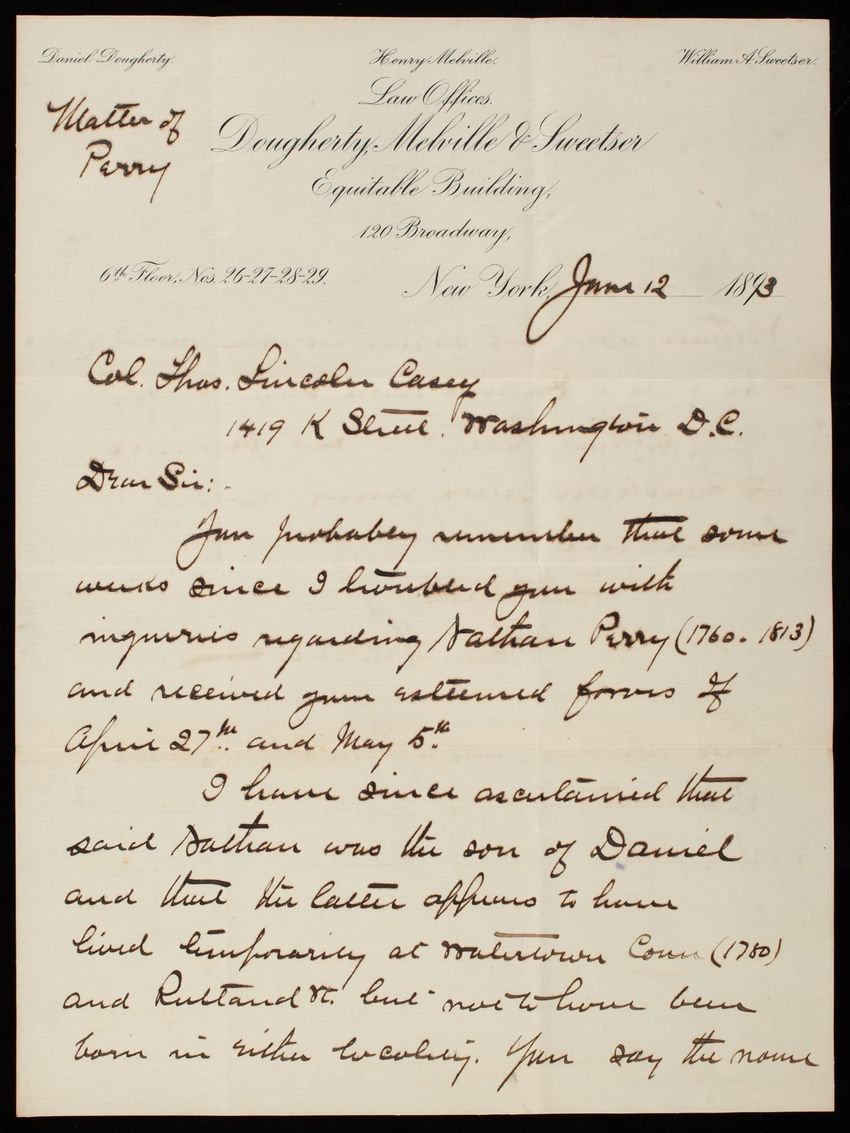 Daniel Dougherty. Henry Melville. William A. Sweetser.
Law Offices.
Matter of
Perry
Dougherty, Melville & Sweetser
Equitable Building,
120 Broadway,
6th Floor, Nos. 26-27-28-29.
New York, June 12 1893
Col. Thos. Lincoln Casey
1419 K Street. Washington D.C.
Dear Sir:-
You probably remember that some
weeks since I troubled you with
inquiries regarding Nathan Perry (1760-1813)
and received your esteemed favors of
April 27th. and May 5th.
I have since ascertained that
said Nathan was the son of Daniel
and that the latter appears to have
lived temporarily at Watertown Conn (1780)
and Rutland Vt. but not to have been
born in either locality. You say the name